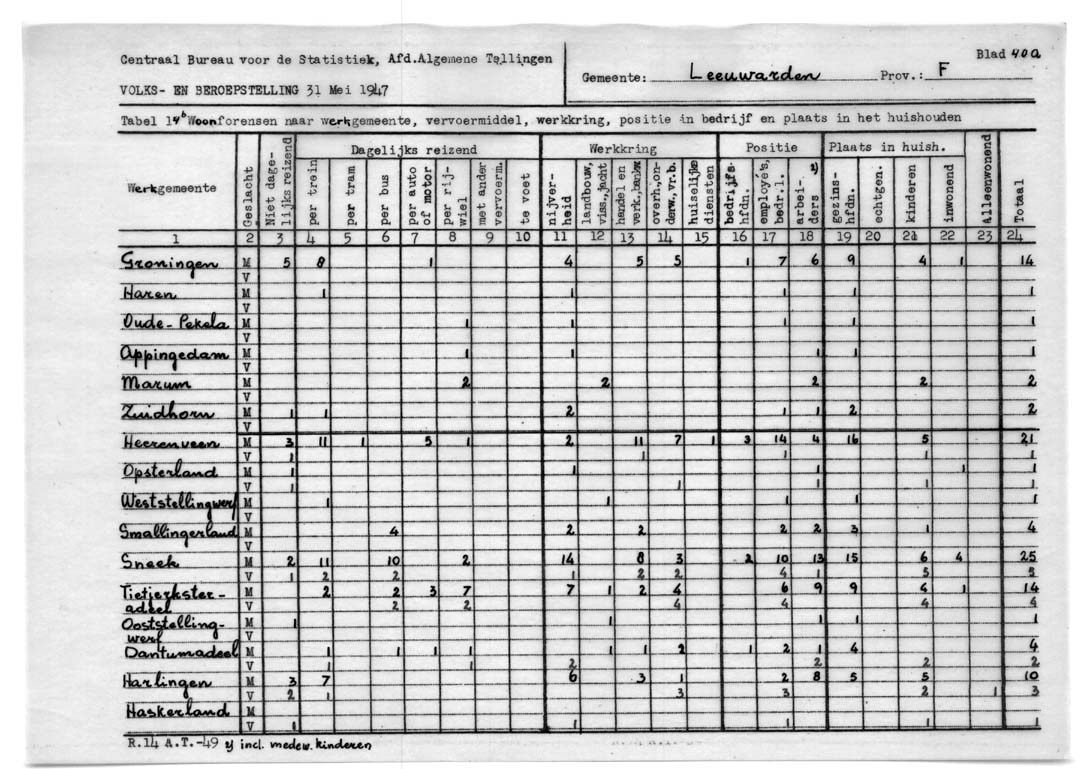 Centraal Bureau voor de Statistiek, Afd.Algemene Tellingen
VOLKS- EN BEROEPSTELLING 31 Mei 1947
Gemeente: Leeuwarden Prov.: F
Blad 40a
Tabel 14b Woonforensen naar werkgemeente, vervoermiddel, werkkring, positie in bedrijf en plaats in het huishouden
Werkgemeente | Geslacht | Niet dage-lijks reizend | Dagelijks reizend | Werkkring | Positie | Plaats in huish. | Alleenwonend | Totaal
per trein | per tram | per bus | per auto of motor | per rij-wiel | met ander vervoerm. | te voet | nijver-heid | landbouw, viss.,jacht | handel en verk.,bankw. | overh.,on-derw.,vr.b. | huiselijke diensten | bedrijfs-hfdn. | employé's, bedr.l. | arbei-ders 2) | gezins-hfdn. | echtgen. | kinderen | inwonend
1 2 3 4 5 6 7 8 9 10 11 12 13 14 15 16 17 18 19 20 21 22 23 24
Groningen M 5 8 1 4 5 5 1 7 6 9 4 1 14
V
Haren M 1 1 1 1 1
V
Oude-Pekela M 1 1 1 1 1
V
Appingedam M 1 1 1 1 1
V
Marum M 2 2 2 2 2
V
Zuidhorn M 1 1 2 1 1 2 2
V
Heerenveen M 3 11 1 5 1 2 11 7 1 3 14 4 16 5 21
V 1 1 1 1 1
Opsterland M 1 1 1 1 1
V 1 1 1 1 1
Weststellingwerf M 1 1 1 1 1
V
Smallingerland M 4 2 2 2 2 3 1 4
V
Sneek M 2 11 10 2 14 8 3 2 10 13 15 6 4 25
V 1 2 2 1 2 2 4 1 5 5
Tietjerkster- M 2 2 3 7 7 1 2 4 6 9 9 4 1 14
adeel V 2 2 4 4 4 4
Ooststelling- M 1 1 1 1 1
werf V
Dantumadeel M 1 1 1 1 1 1 2 1 2 1 4 4
V 1 1 2 2 2 2
Harlingen M 3 7 6 3 1 2 8 5 5 10
V 2 1 3 3 2 1 3
Haskerland M
V 1 1 1 1 1
R.14 A.T.-49 2) incl. medew. kinderen